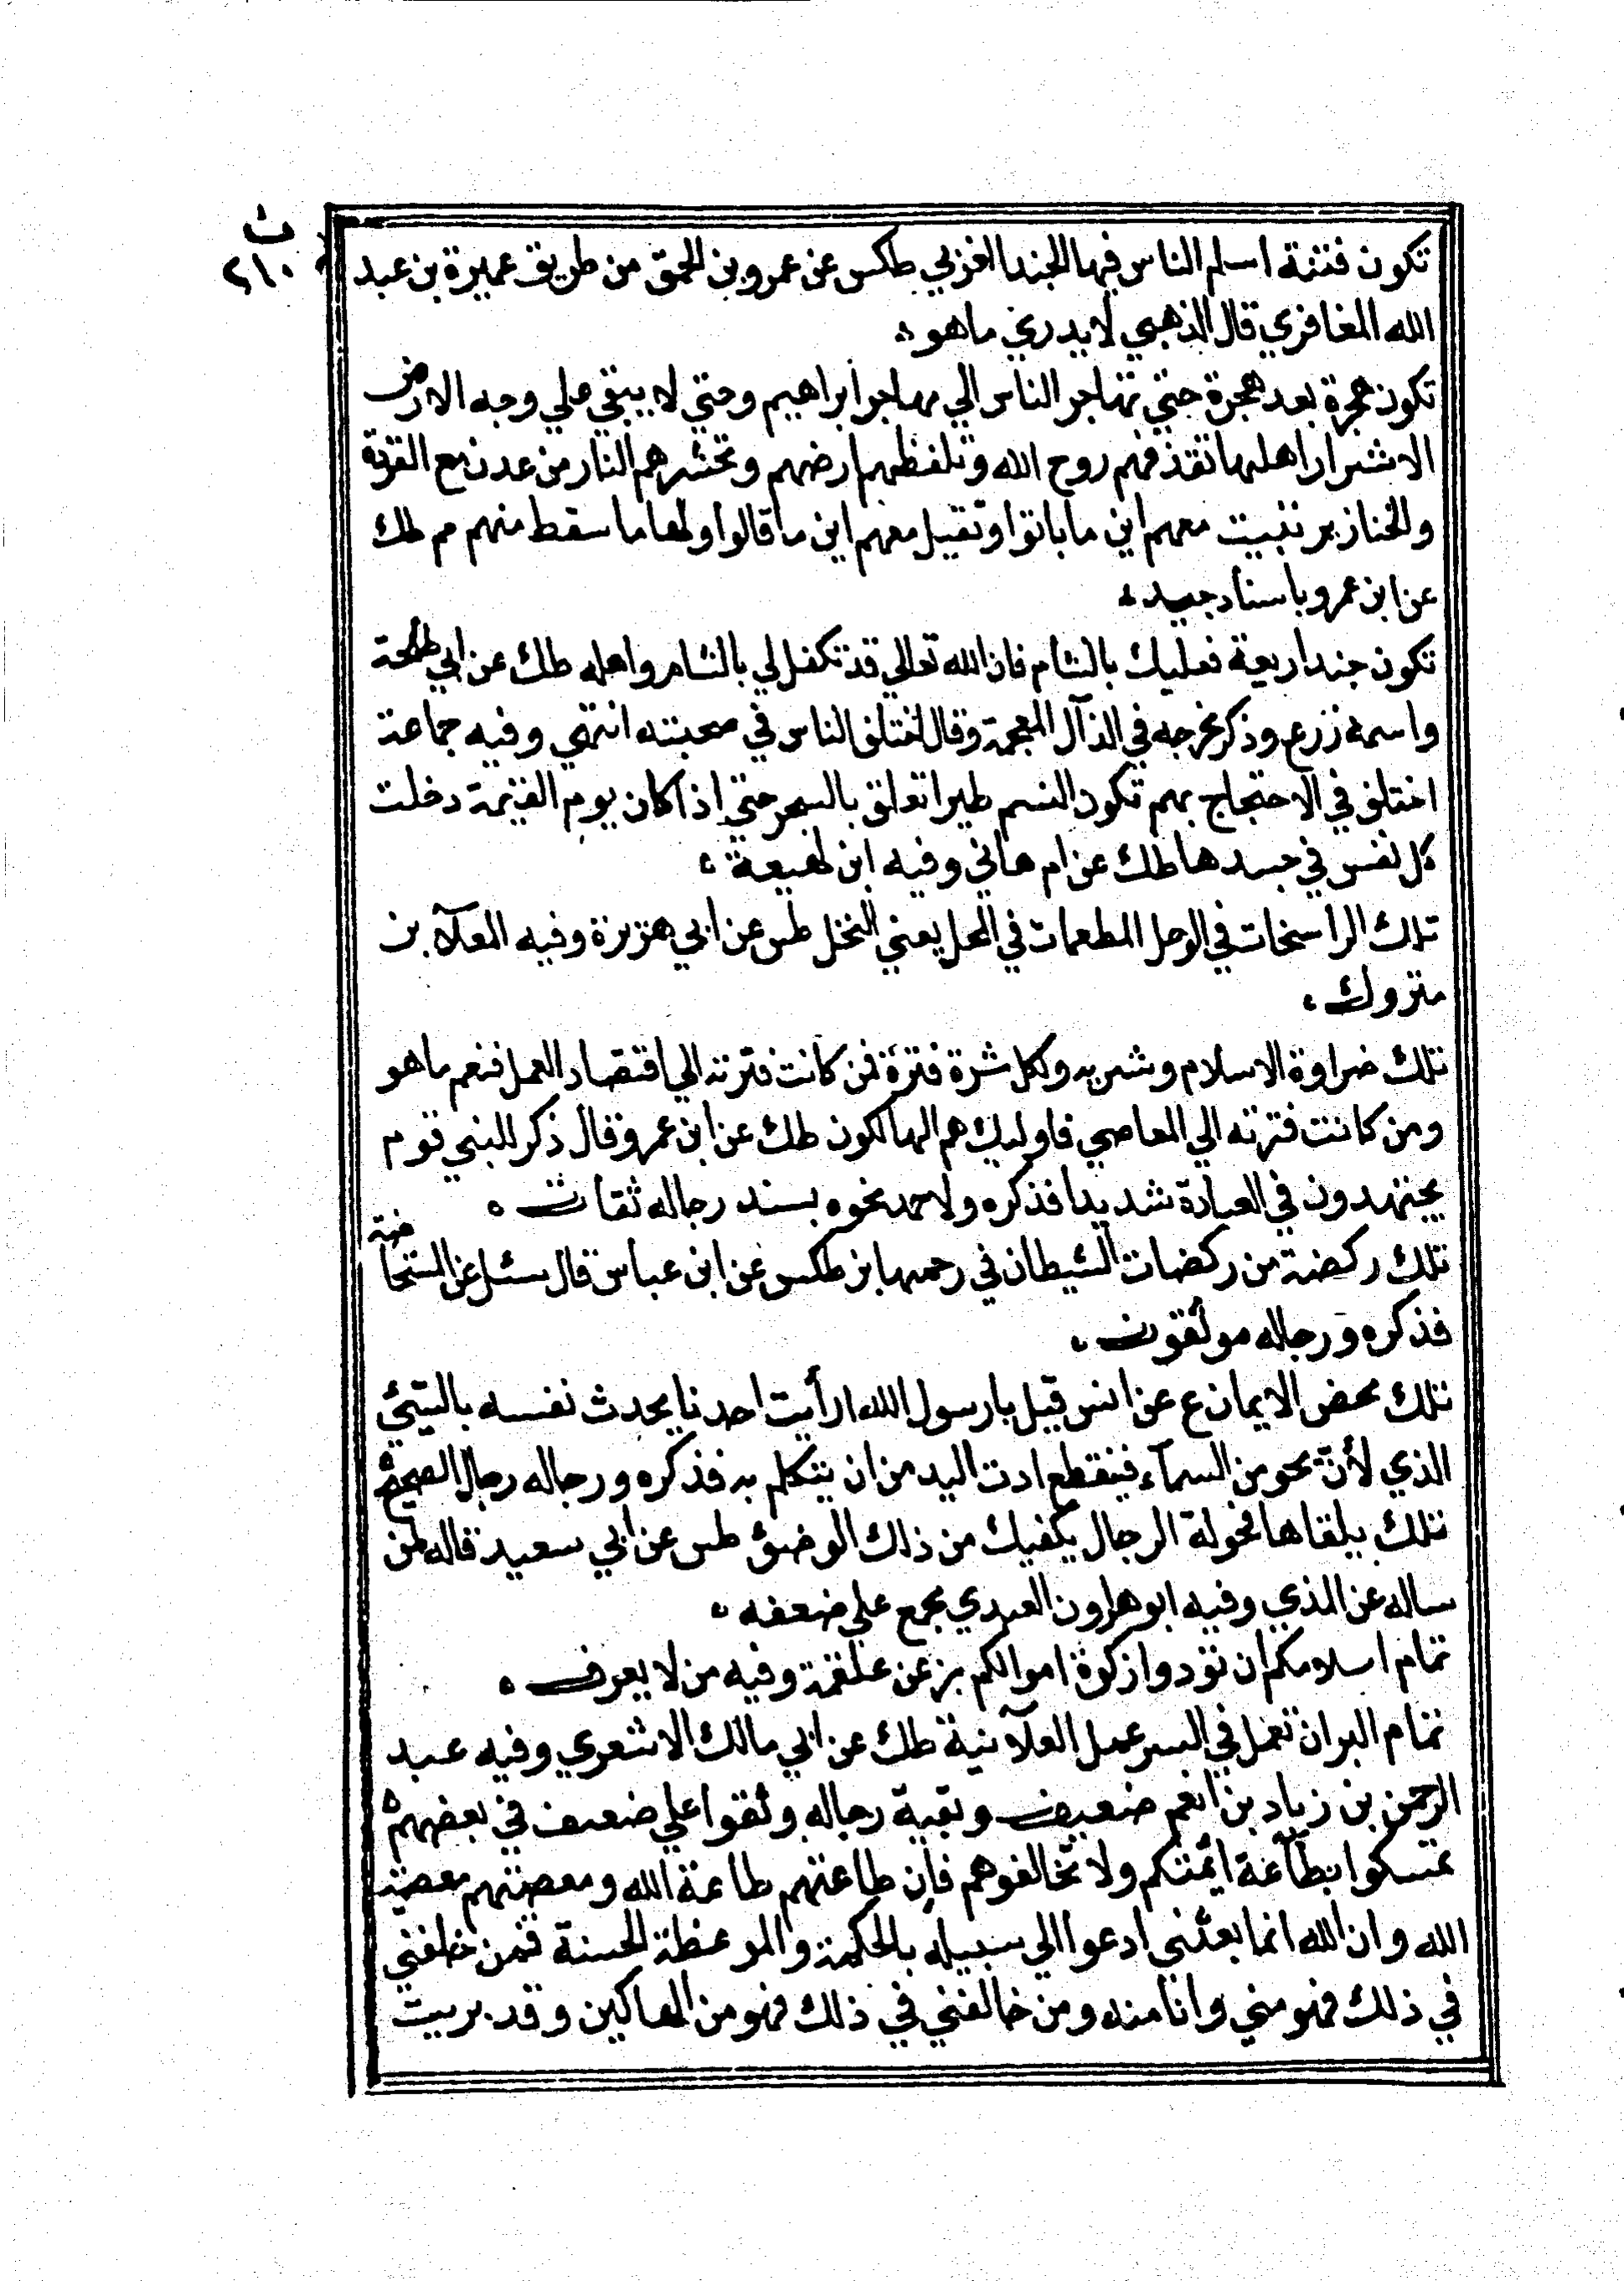 ث
٢١٠
تكون فتنة اسلم الناس فيها الجند الغربي طكس عن عمرو بن الحمق من طريق عميرة بن عبد
الله المغافري قال الذهبي لا يدري ما هو
تكون هجرة بعد هجرة حتي تهاجر الناس الي مهاجر ابراهيم وحتي لا يبقي علي وجه الارض
الا شرار اهلها تقذفهم روح الله وتلفظهم ارضهم وتحشرهم النار من عدن مع القردة
والخنازير تبيت معهم اين ما باتوا وتقيل معهم اين ما قالوا ولها ما سقط منهم م طك
عن ابن عمرو باسناد جيد
تكون جند اربعة فعليك بالشام فان الله تعالي قد تكفل لي بالشام واهله طك عن ابي طلحة
واسمه زرع وذكر مخرجه في الذآل المعجمة وقال اختلف الناس في صحبته انتهي وفيه جماعة
اختلف في الآحتجاج بهم تكون النسم طيرا تعلق بالسجر حتي اذا كان يوم القيمة دخلت
كل نفس في جسدها طك عن ام هاني وفيه ابن لهيعة
تلك الراسخات في الوحل المطعمات في المحل يعني النخل طس عن ابي هريرة وفيه المعلآ بن
متروك
تلك ضراوة الاسلام وشربه ولكل شرة فترة فمن كانت فترته الي اقتصاد العمل فنعم ما هو
ومن كانت فترته الي المعاصي فاوليك هم الهالكون طك عن ابن عمرو قال ذكر للنبي قوم
يجتهدون في العبادة شديدا فذكره ولاحمد نحوه بسند رجاله ثقات
تلك ركضة من ركضات الشيطان في رحمها بز طكس عن ابن عباس قال سئل عن المستحاضة
فذكره ورجاله موثقون
تلك محض الايمان ع عن انس قيل يا رسول الله ارأيت احدنا يحدث نفسه بالشيئ
الذي لأن نحو من السمآء فينقطع ادت اليد من ان يتكلم به فذكره ورجاله رجال الصحيح
تلك يلقاها فحولة الرجال يكفيك من ذلك الوضؤ طس عن ابي سعيد قاله لمن
ساله عن المذي وفيه ابو هارون العبدي مجمع علي ضعفه
تمام اسلامكم ان تودوا زكوة اموالكم بز عن علقمة وفيه من لا يعرف
تمام البر ان تعمل في السر عمل العلآنية طك عن ابي مالك الاشعري وفيه عبد
الرحمن بن زياد بن انعم ضعيف وبقية رجاله وثقوا علي ضعف في بعضهم
تمسكوا بطآعة ايمتكم ولا تخالفوهم فان طاعتهم طاعة الله ومعصيتهم معصية
الله وان الله انما بعثني ادعوا الي سبيله بالحكمة والموعظة الحسنة فمن خلفني
في ذلك فهو مني وانا منه ومن خالفني في ذلك فهو من الهاكين وقد بريت